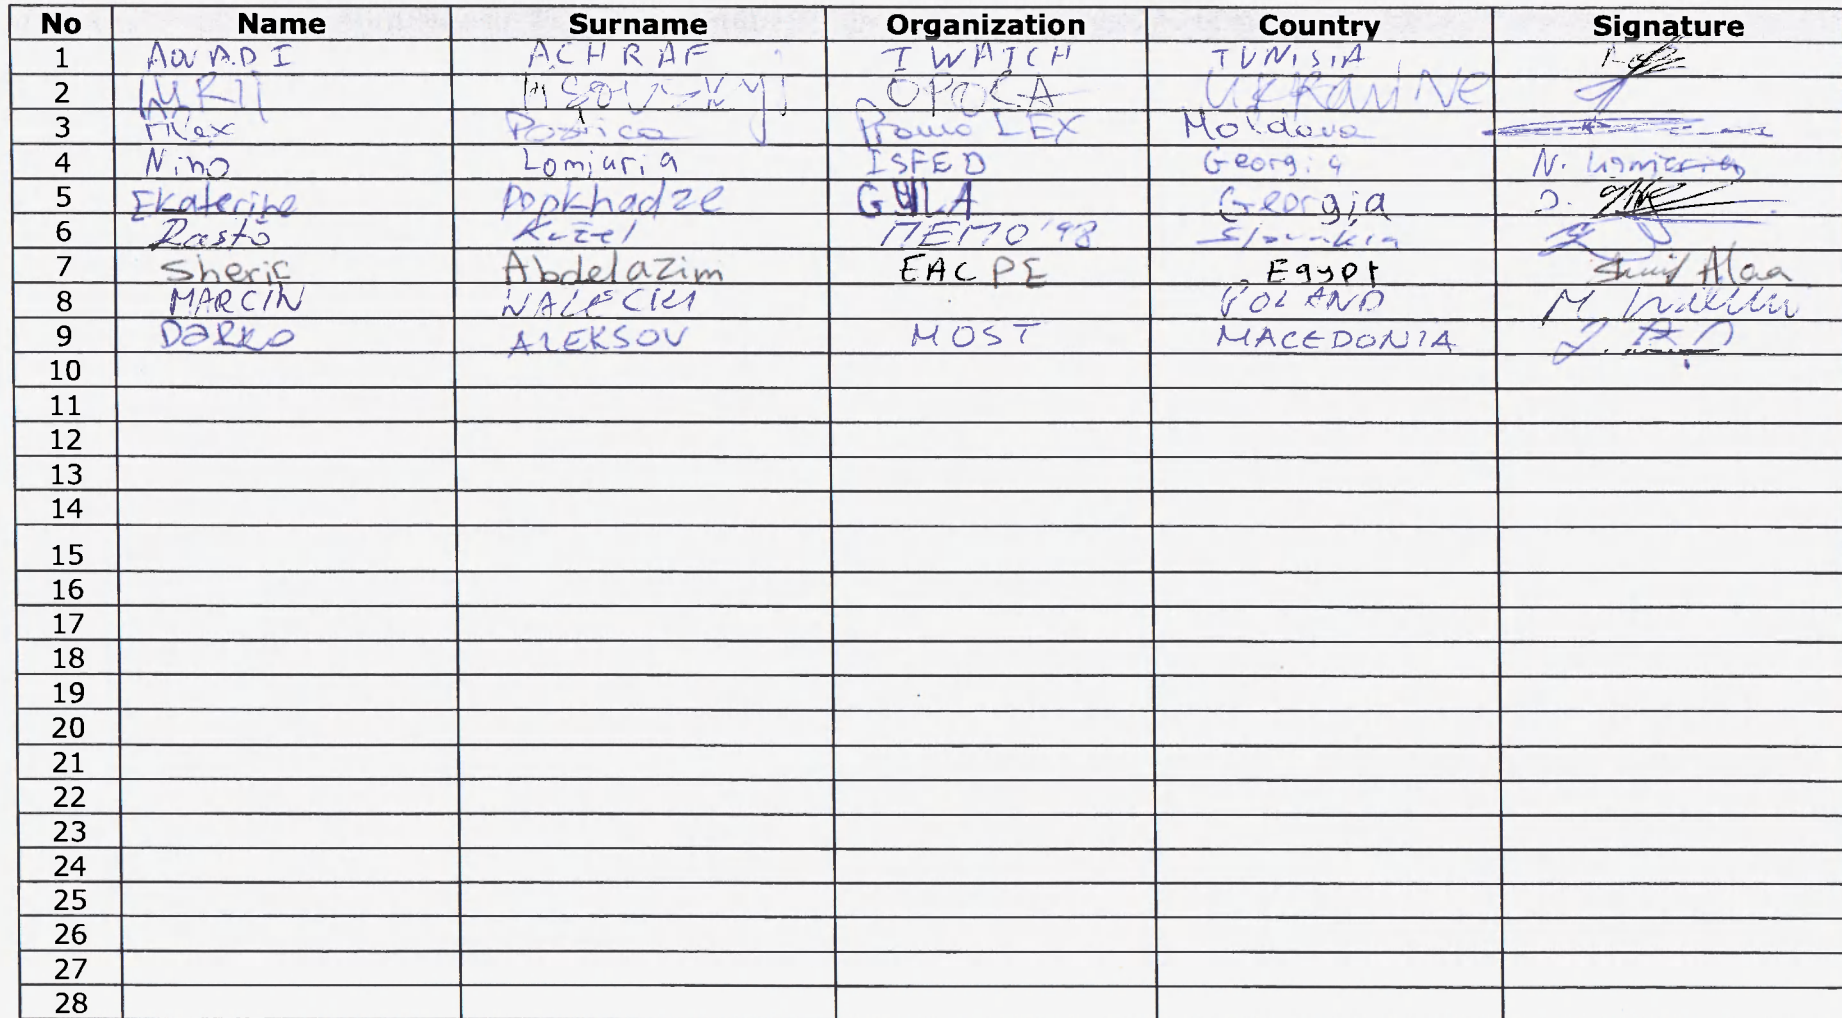 No Name Surname Organization Country Signature
1 AWADI ACHRAF I WATCH TUNISIA
2 OPORA UKRAINE
3 Alex Postica Promo LEX Moldova
4 Nino Lomjaria ISFED Georgia N. Lomjaria
5 Ekaterine Popkhadze GYLA Georgia
6 Rasto Kužel MEMO'98 Slovakia
7 Sheric Abdelazim EACPE Egypt Alaa
8 MARCIN WALECKI POLAND M
9 DARKO ALEKSOV MOST MACEDONIA
10
11
12
13
14
15
16
17
18
19
20
21
22
23
24
25
26
27
28